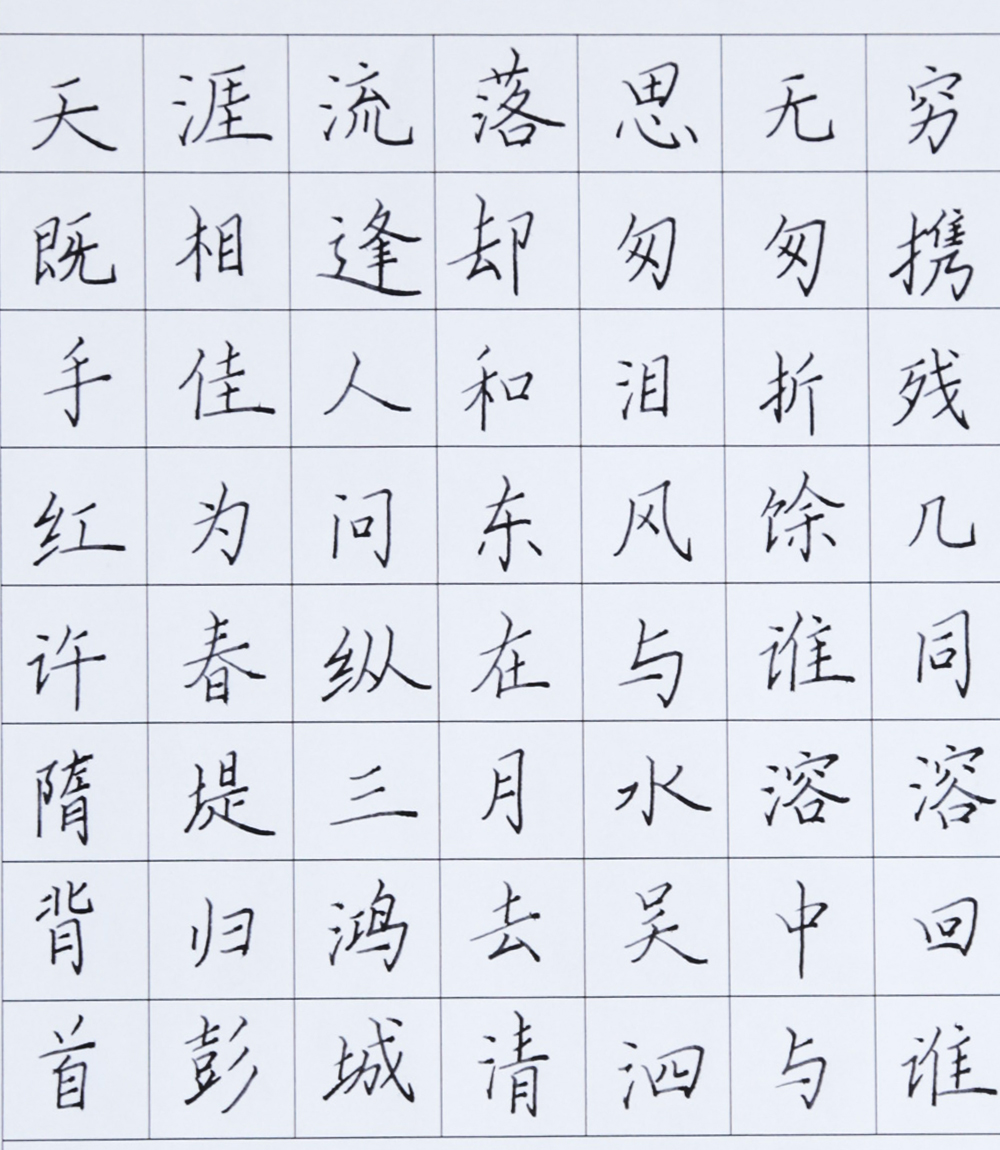 天涯流落思无穷
既相逢却匆匆携
手佳人和泪折残
红为问东风馀几
许春纵在与谁同
隋堤三月水溶溶
背归鸿去吴中回
首彭城清泗与谁